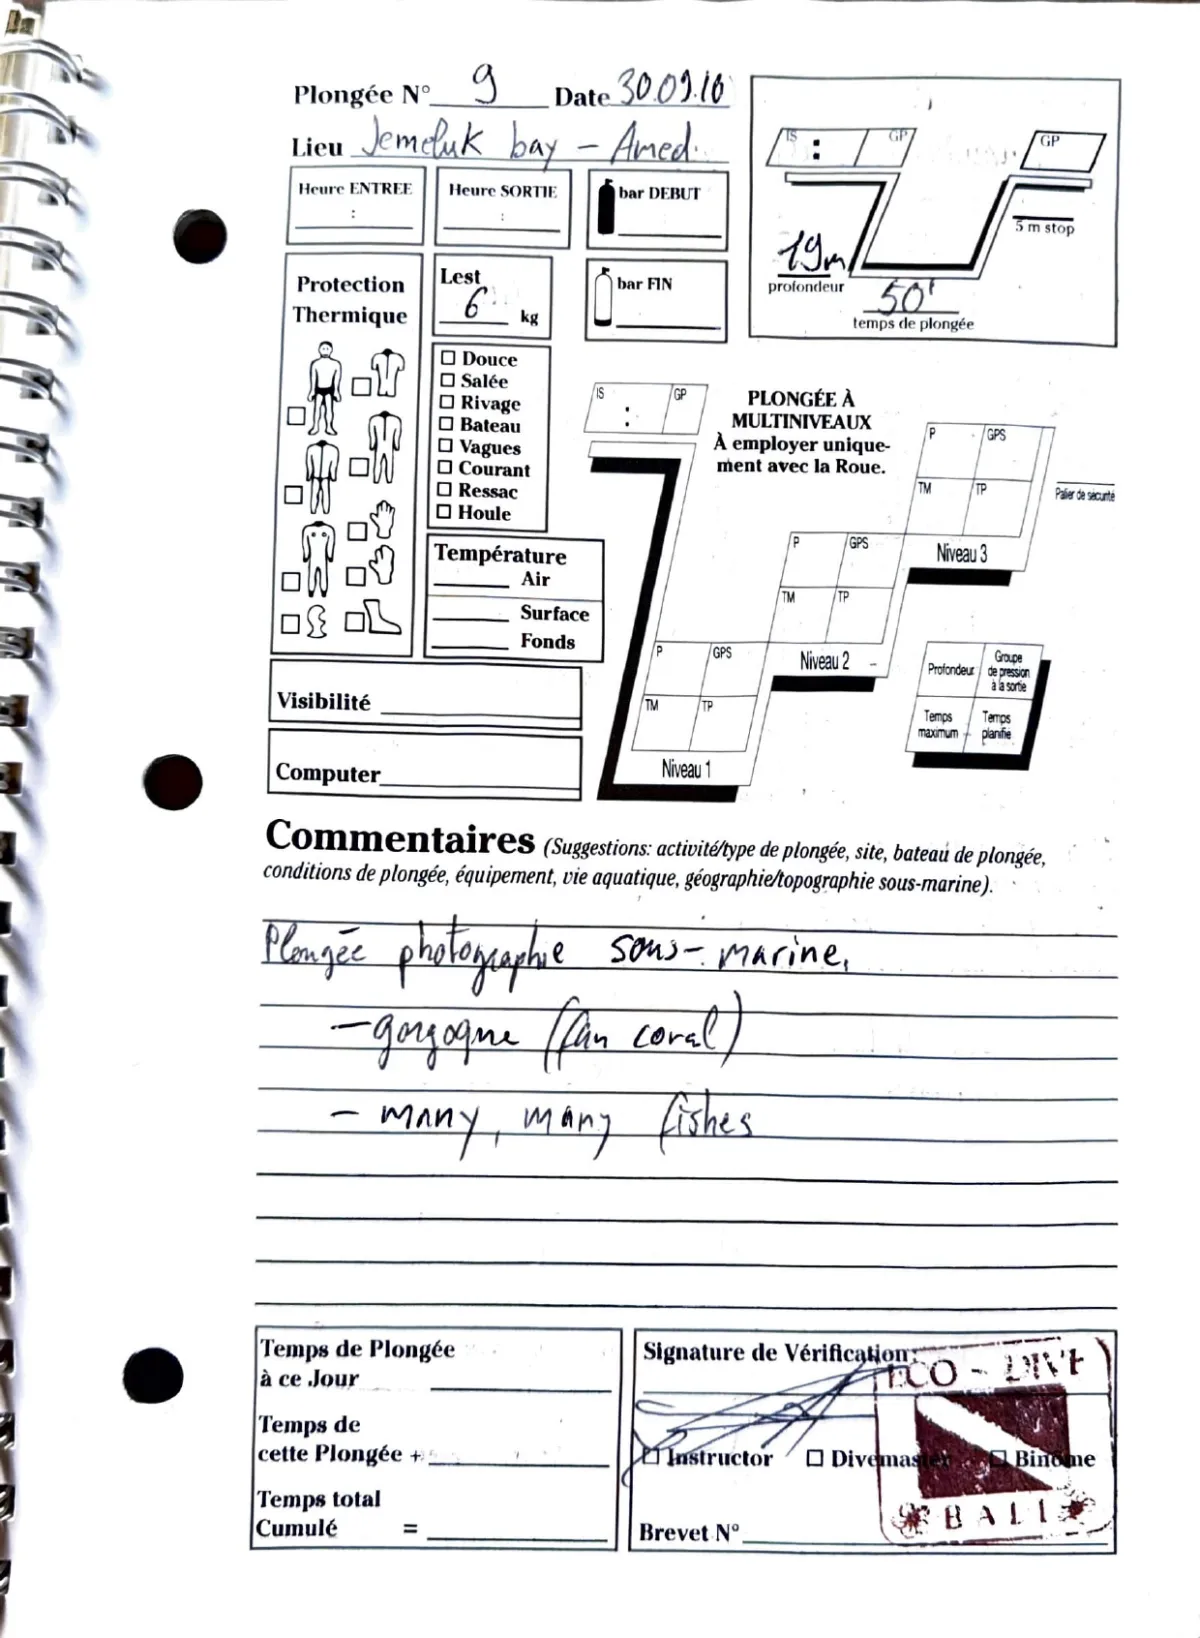 Plongée N° 9 Date 30.09.16
Lieu Jemeluk bay - Amed.
Heure ENTREE
:
Heure SORTIE
:
bar DEBUT
bar FIN
IS : GP
GP
5 m stop
19m
profondeur
50'
temps de plongée
Protection
Thermique
Lest
6 kg
Douce
Salée
Rivage
Bateau
Vagues
Courant
Ressac
Houle
Température
Air
Surface
Fonds
Visibilité
Computer
IS : GP
PLONGÉE À
MULTINIVEAUX
À employer unique-
ment avec la Roue.
P GPS
TM TP
Niveau 3
Palier de sécurité
P GPS
TM TP
Niveau 2
P GPS
TM TP
Niveau 1
Profondeur
Groupe
de pression
à la sortie
Temps
maximum
Temps
planifie
Commentaires (Suggestions: activité/type de plongée, site, bateau de plongée,
conditions de plongée, équipement, vie aquatique, géographie/topographie sous-marine).
Plongée photographie sous-marine,
- gorgogne (fan coral)
- many, many fishes
Temps de Plongée
à ce Jour
Temps de
cette Plongée +
Temps total
Cumulé =
Signature de Vérification:
Instructor Divemaster Binôme
Brevet N°
ECO - DIVE
BALI